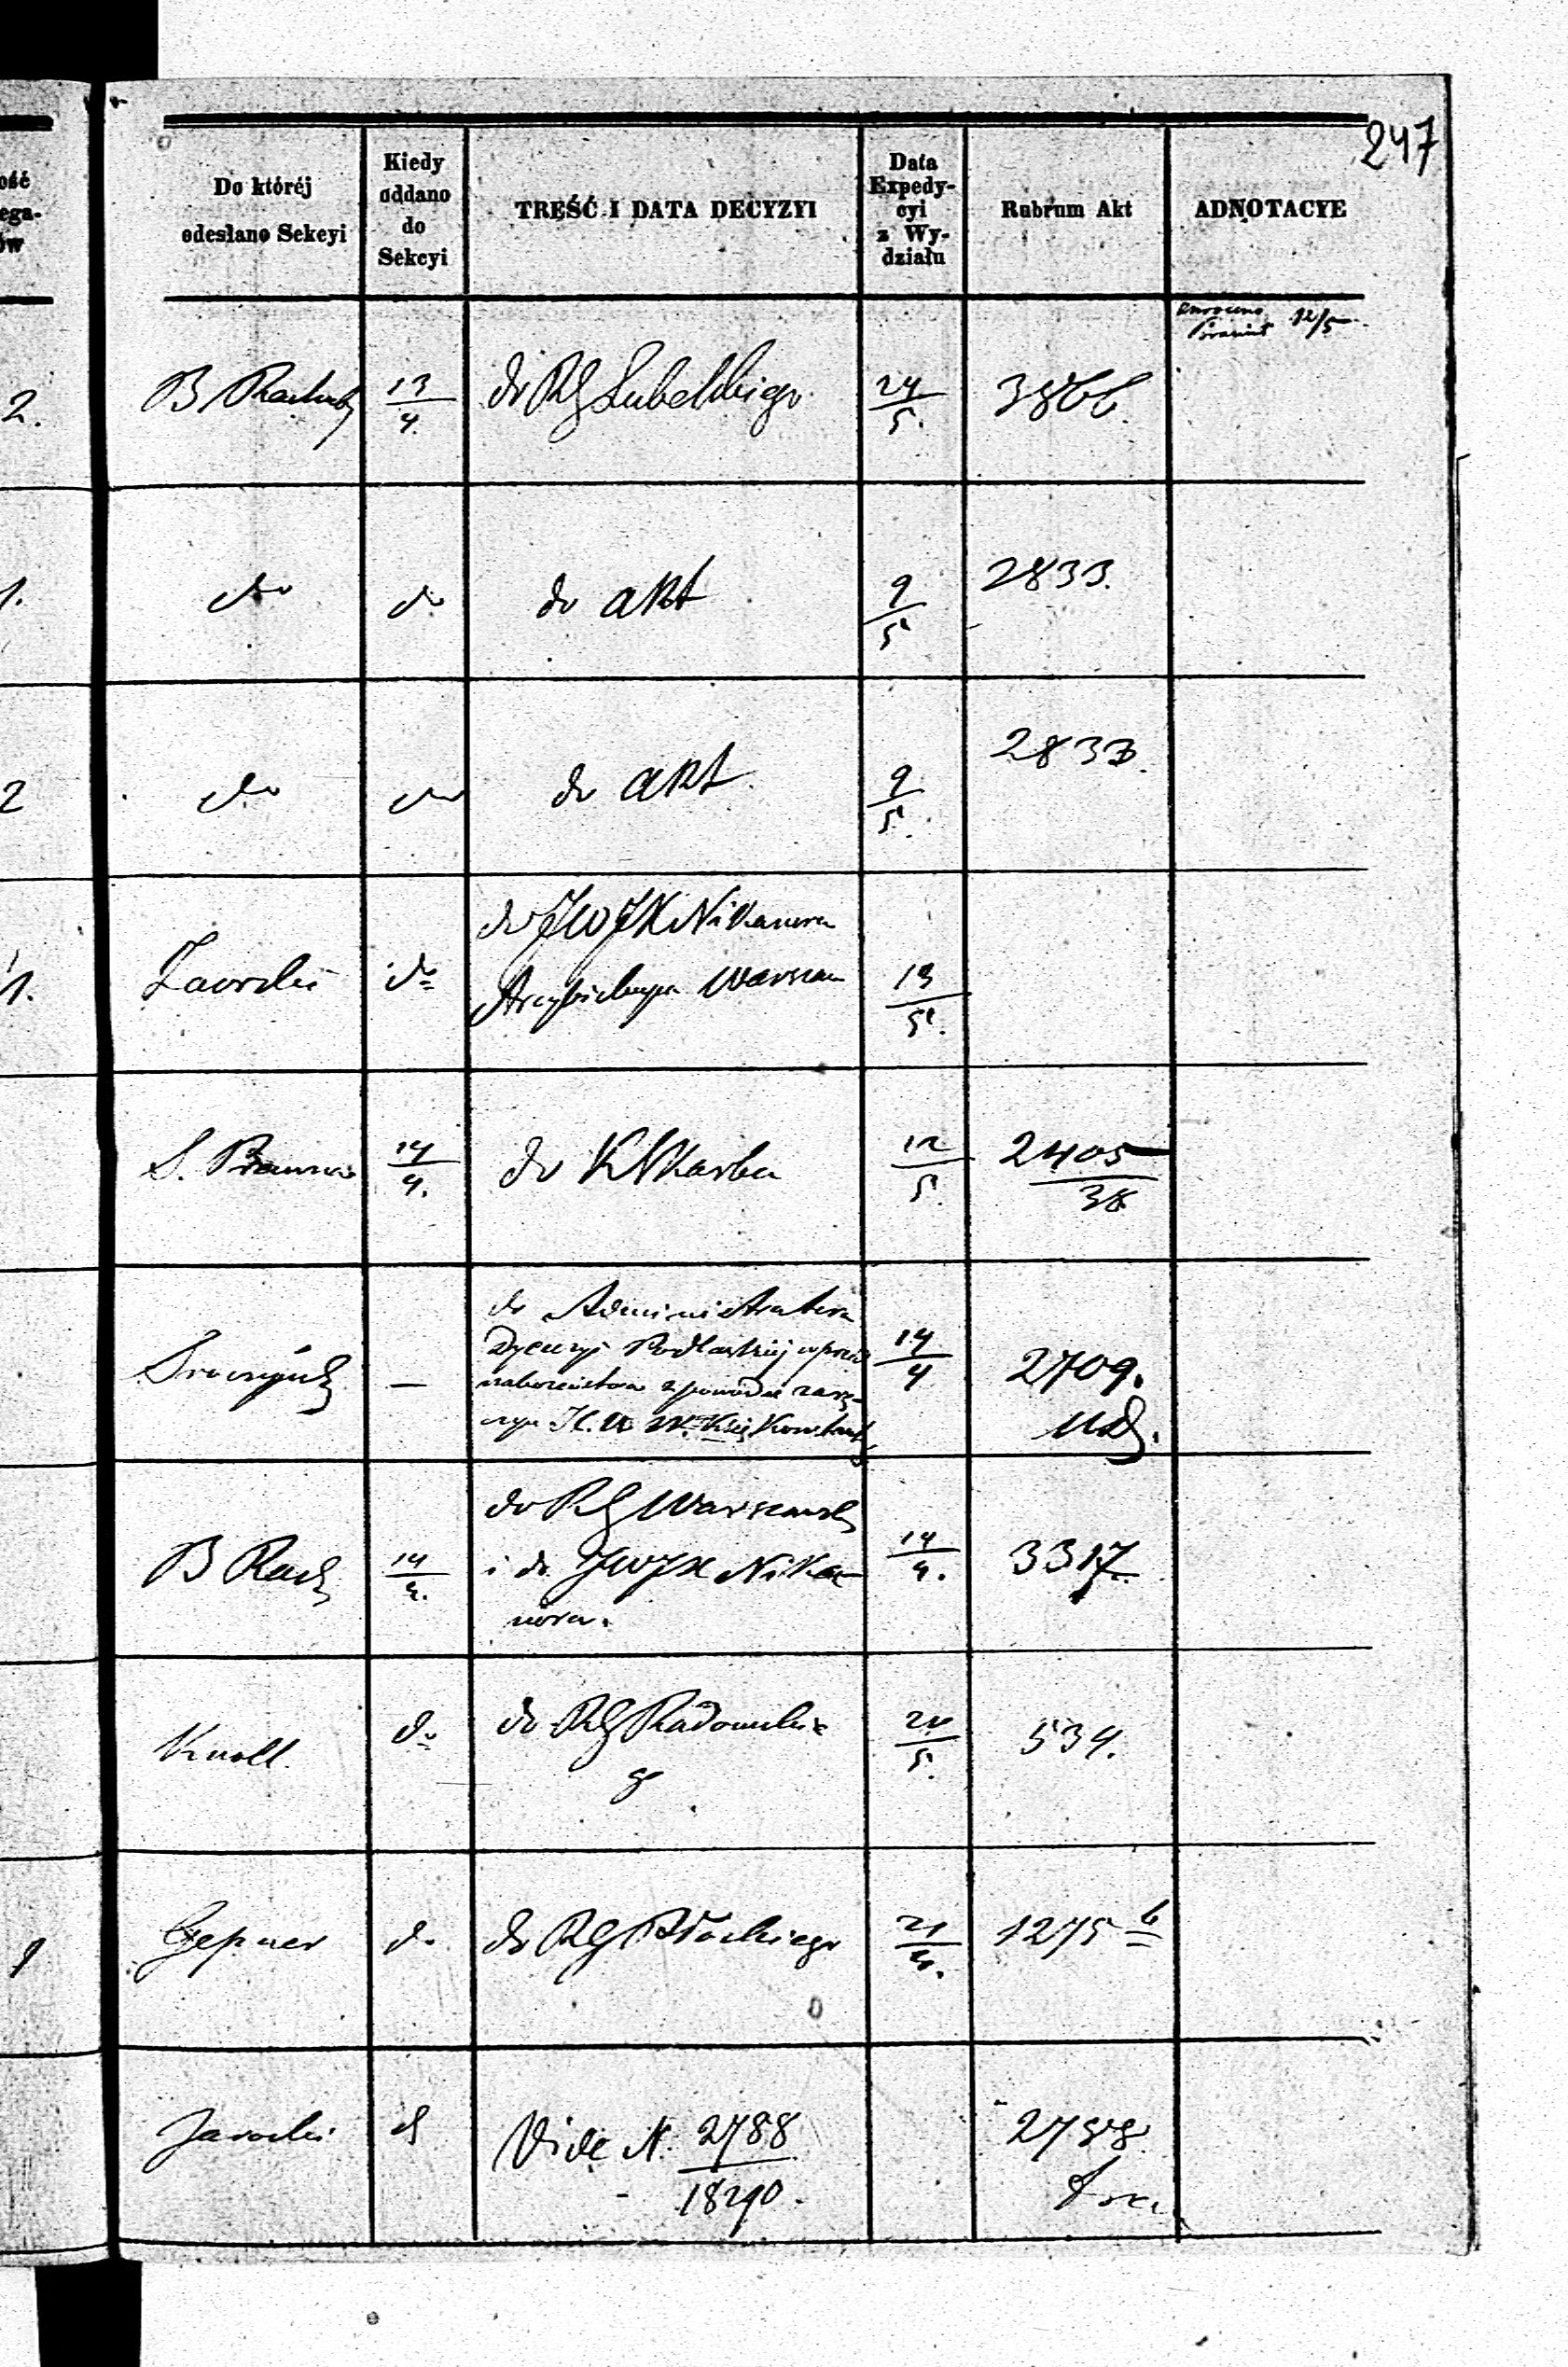 247
ość
ega-
ów
Do któréj
odesłano Sekcyi
Kiedy
oddano
do
Sekcyi
TREŚĆ I DATA DECYZYI
Data
Expedy-
cyi
z Wy-
działu
Rubrum Akt
ADNOTACYE
12/5
2.
B Rachub
13/4.
do RG Lubelskiego
24/5.
1.
do
do
do akt
9/5
2833.
2
do
do
do akt
9/5.
2833.
1.
do
do JWJX Nikanora
Arcybiskupa Warszaw
13/5.
S. Prawna
14/4.
do K Skarbu
12/5.
2405/38
—
do Administratora
Dyecezyi Podlaskiej
nabożeństwa z powodu zarę-
Konstant
14/4
2709.
B Rach
14/4.
do RG Warszawsk
i do JWJX Nika-
nora.
14/4.
3317
Knoll.
do
do RG Radomskie
go
5.
534.
1
Gepner
do
do RG Płockiego
21/4.
1275 b
Jarocki
d
Vide N. 2788/18290.
2788